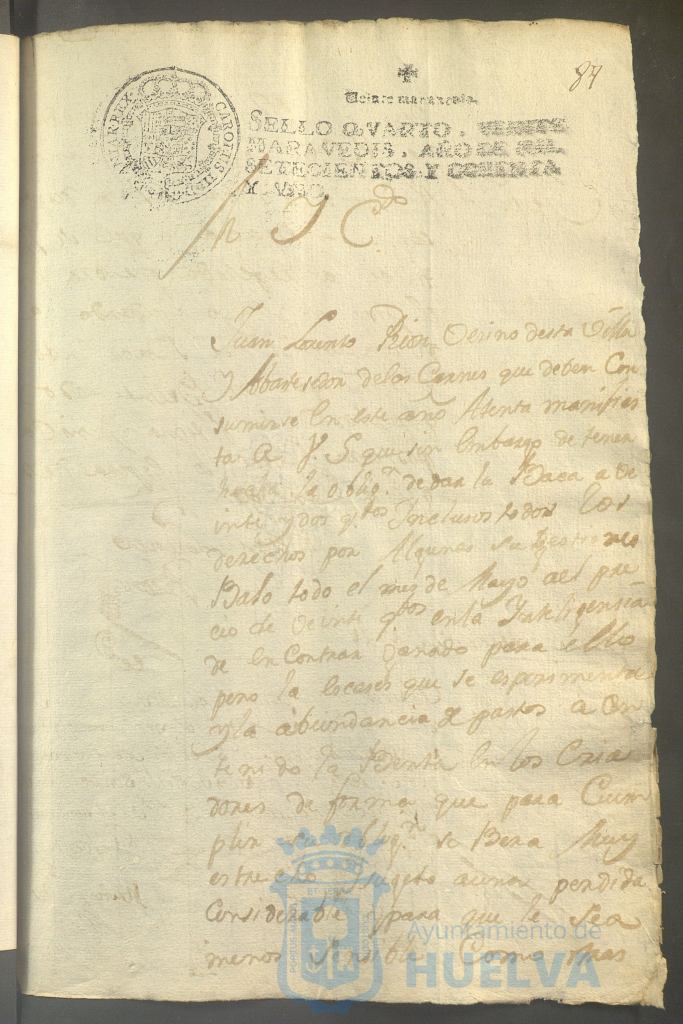 87
Veinte maravedis.
SELLO QVARTO, VEINTE
MARAVEDIS, AÑO DE MIL
SETECIENTOS Y OCHENTA
Y VNO.
CAROLUS III D
Juan Lorenzo Vecino desta Villa
y Abastesedor de las Carnes que deben Con
sumirse En este año Atento manifies
ta a V. S que sin Embargo de tener
hecha la oblig.n de dar la Baca a Ve
inte y dos q.tos Inclusos todos los
derechos por Algunas
Bajo todo el mes de Mayo al pre
cio de Veinte q.tos en la Inteligensia
de En Contrar Ganado para ello
pero la Escases que se esperimenta
y la abundancia de pastos a Con
tenido la Benta En los Cria
dores de forma que para Cum
plir su oblig.n se Bera Muy
estrecho sugeto a una perdida
Considerable y para que le sea
menos sensible Como mas
Ayuntamiento de
HUELVA